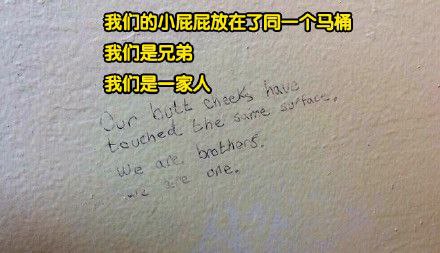 我们的小屁屁放在了同一个马桶
我们是兄弟
我们是一家人
Our butt cheeks have
touched the same surface.
We are brothers.
we are one.